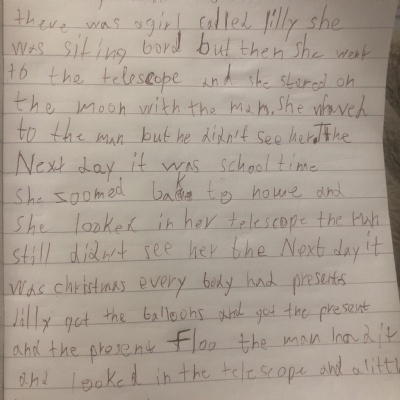 there was a girl called lilly she
was siting bord but then she went
to the telescope and she stared on
the moon with the man. she waved
to the man but he didn't see her. The
Next day it was school time
she zoomed back to home and
she looked in her telescope the man
still didn't see her the Next day it
was christmas every body had presents
lilly got the balloons and got the present
and the present floo the man had it
and looked in the telescope and a littl